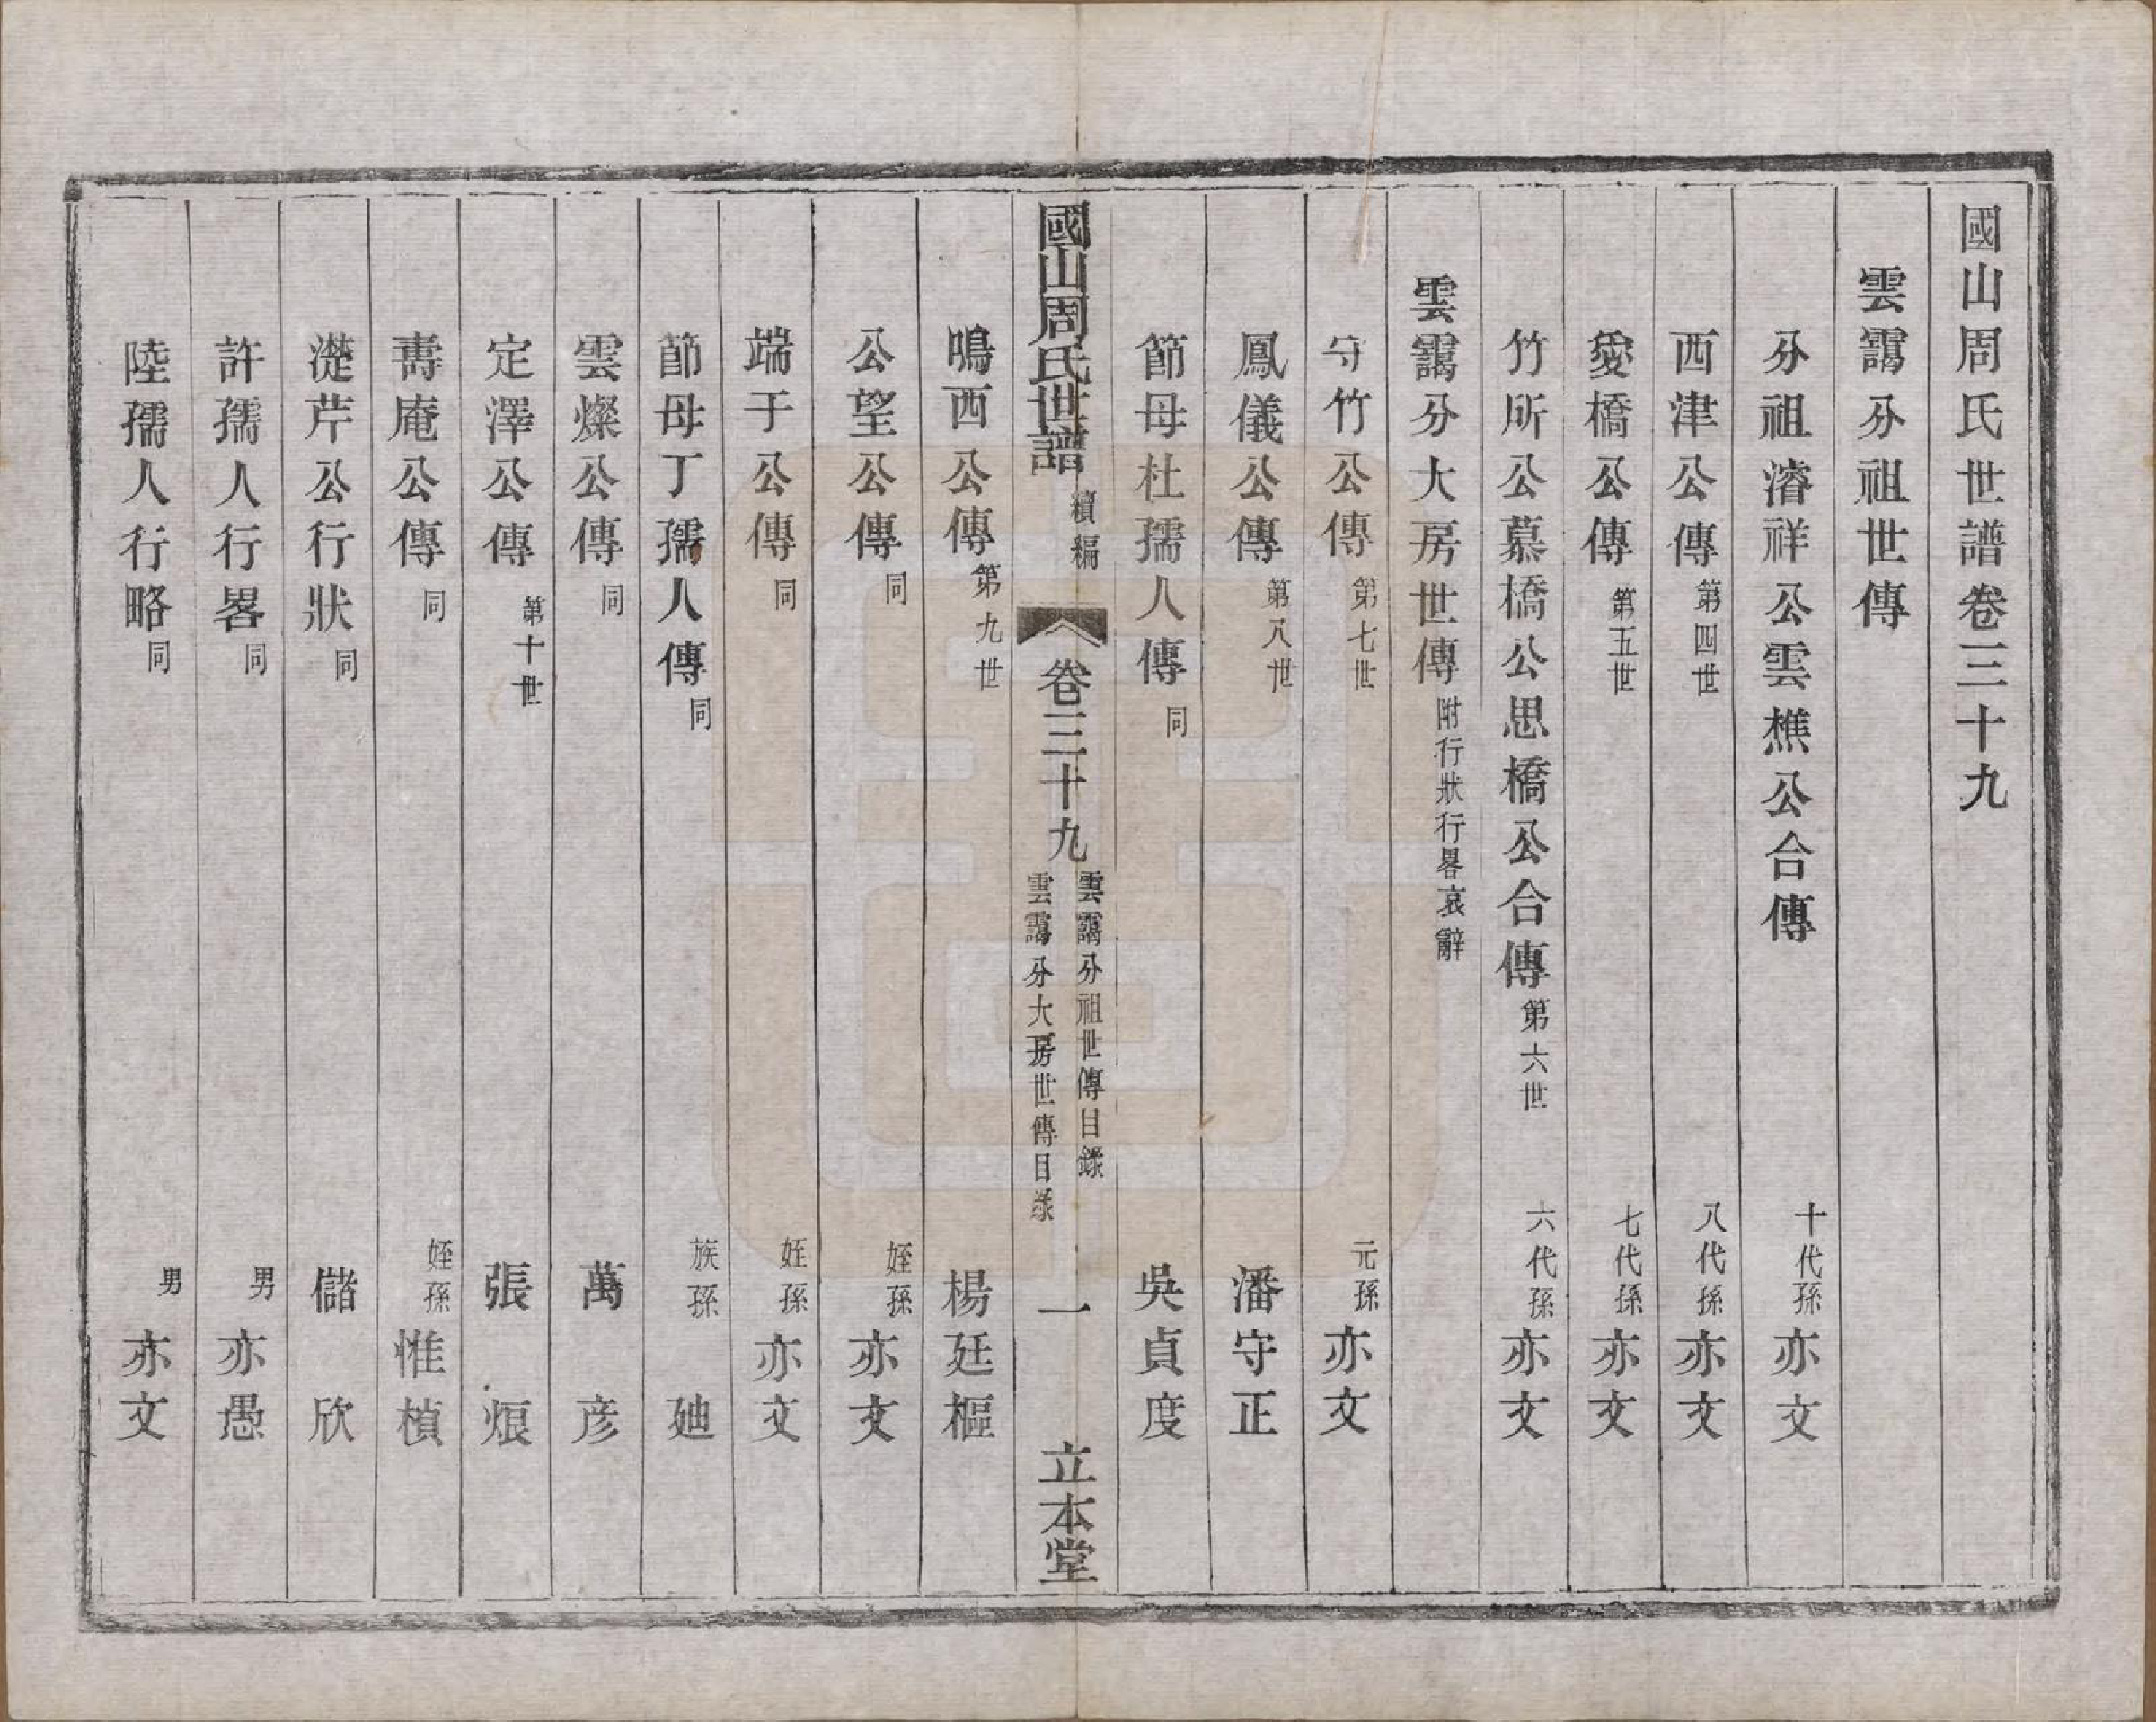 國山周氏世譜卷三十九
雲靄分祖世傳
分祖濬祥公雲樵公合傳 十代孫亦文
西津公傳第四世 八代孫亦文
愛橋公傳第五世 七代孫亦文
竹所公慕橋公思橋公合傳第六世 六代孫亦文
雲靄分大房世傳附行狀行畧哀辭
竹公傳第七世 元孫亦文
鳳儀公傳第八世 潘守正
節母杜孺人傳同 吳貞度
國山周氏世譜 續編 卷三十九 雲靄分祖世傳目錄 雲靄分大房世傳目錄 一 立本堂
鳴西公傳第九世 楊廷樞
公望公傳同 姪孫亦文
端于公傳同 姪孫亦文
節母丁孺人傳同 族孫廸
雲燦公傳同 萬彦
定澤公傳第十世 張烺
壽庵公傳同 姪孫惟楨
蓰芹公行狀同 儲欣
許孺人行畧同 男亦愚
陸孺人行略同 男亦文